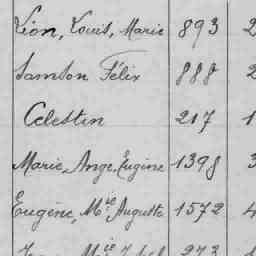 Léon, Louis, Marie 893 2
Samson Félix 888 2
Celestin 217 1
Marie, Ange, Eugène 1398 3
Eugène, Mie Augustte 1572 4
Mie 273